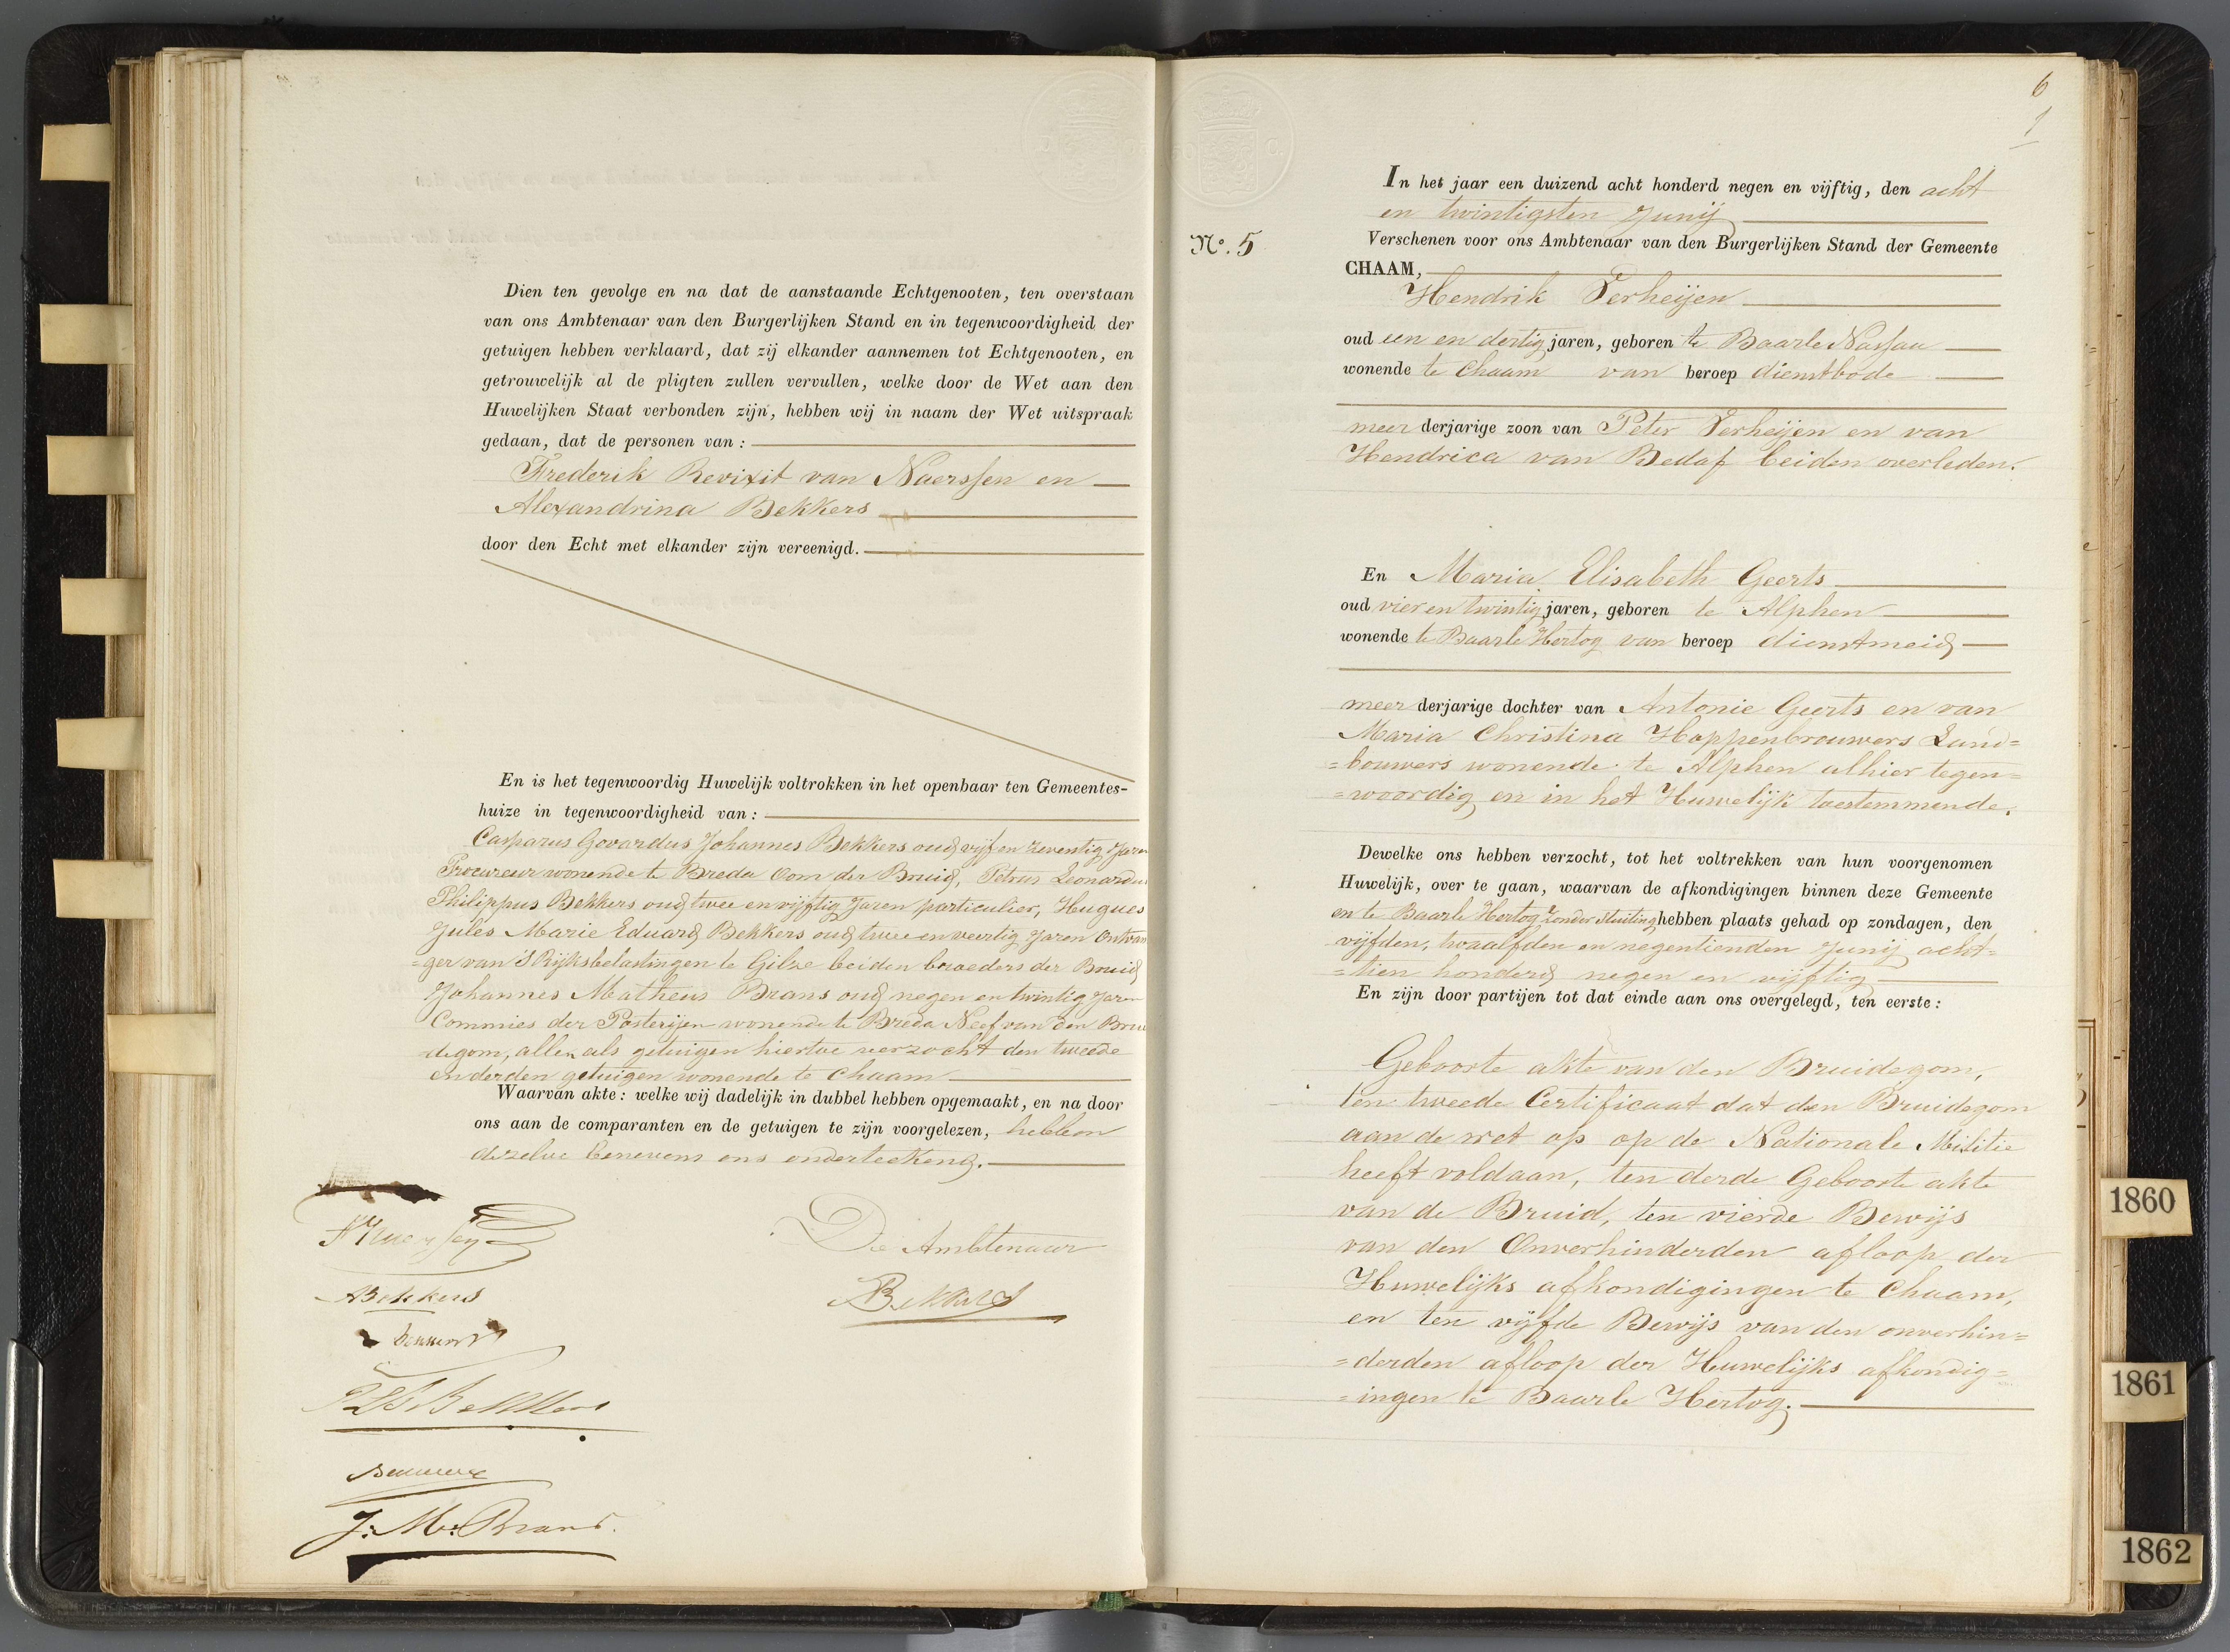 Dien ten gevolge en na dat de aanstaande Echtgenooten, ten overstaan
van ons Ambtenaar van den Burgerlijken Stand en in tegenwoordigheid der
getuigen hebben verklaard, dat zij elkander aannemen tot Echtgenooten, en
getrouwelijk al de pligten zullen vervullen, welke door de Wet aan den
Huwelijken Staat verbonden zijn, hebben wij in naam der Wet uitspraak
gedaan, dat de personen van:
Frederik Revixit van Naerssen en
Alexandrina Bekkers
door den Echt met elkander zijn vereenigd.
En is het tegenwoordig Huwelijk voltrokken in het openbaar ten Gemeentes-
huize in tegenwoordigheid van:
Casparus Govardus Johannes Bekkers oud vijf en zeventig Jaren
Procureur wonende te Breda Oom der Bruid, Petrus Leonardus
Philippus Bekkers oud twee en vijftig Jaren particulier, Hugues
Jules Marie Eduard Bekkers oud twee en veertig Jaren Ontvan
=ger van 'S Rijksbelastingen te Gilze beiden broeders der Bruid
Johannes Matheus Brans oud negen en twintig Jaren
Commies der Posterijen wonende te Breda Neef van den Brui
degom, allen als getuigen hiertoe verzocht den tweede
en derden getuigen wonende te Chaam
Waarvan akte: welke wij dadelijk in dubbel hebben opgemaakt, en na door
ons aan de comparanten en de getuigen te zijn voorgelezen, hebben
dezelve benevens ons onderteekend.
De Ambtenaar
ABekkers
Bekkers
PLPBekkers
J: M: Brans.
6
1
No. 5
In het jaar een duizend acht honderd negen en vijftig, den acht
en twintigsten Junij
Verschenen voor ons Ambtenaar van den Burgerlijken Stand der Gemeente
CHAAM,
Hendrik Verheijen
oud een en dertig jaren, geboren te Baarle Nassau
wonende te Chaam van beroep dienstbode
meer derjarige zoon van Peter Verheijen en van
Hendrica van Bedaf beiden overleden.
En Maria Elisabeth Geerts
oud vier en twintig jaren, geboren te Alphen
wonende te Baarle Hertog van beroep dienstmeid
meer derjarige dochter van Antonie Geerts en van
Maria Christina Hoppenbrouwers Land=
=bouwers wonende te Alphen alhier tegen=
=woordig en in het Huwelijk toestemmende.
Dewelke ons hebben verzocht, tot het voltrekken van hun voorgenomen
Huwelijk, over te gaan, waarvan de afkondigingen binnen deze Gemeente
en te Baarle Hertog zonder stuiting hebben plaats gehad op zondagen, den
vijfden, twaalfden en negentienden Junij acht=
=tien honderd negen en vijftig
En zijn door partijen tot dat einde aan ons overgelegd, ten eerste:
Geboorte akte van den Bruidegom,
ten tweede Certificaat dat den Bruidegom
aan de wet op op de Nationale Militie
heeft voldaan, ten derde Geboorte akte
van de Bruid, ten vierde Bewijs
van den Onverhinderden afloop der
Huwelijks afkondigingen te Chaam,
en ten vijfde Bewijs van den onverhin=
=derden afloop der Huwelijks afkondig=
=ingen te Baarle Hertog.
1860
1861
1862